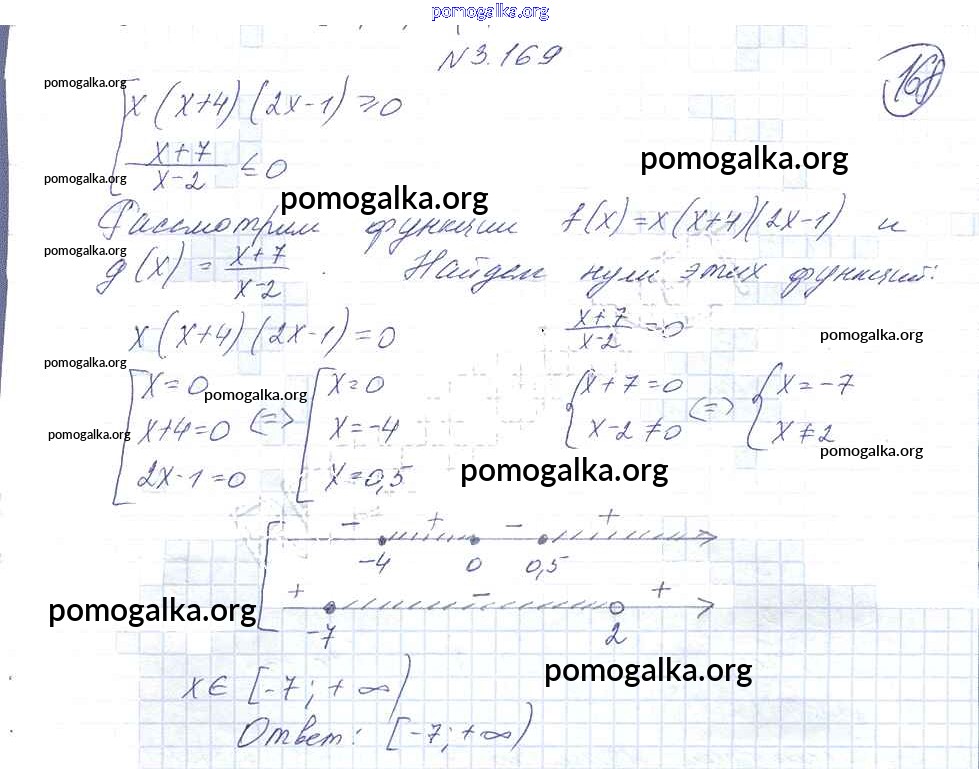 pomogalka.org
N 3.169
168
pomogalka.org
x (x+4) (2x-1) ≥ 0
x+7
x-2 ≤ 0
pomogalka.org
pomogalka.org
pomogalka.org
Рассмотрим функции f(x)=x(x+4)(2x-1) и
pomogalka.org
g(x) = x+7
x-2 . Найдем нули этих функций:
x (x+4) (2x-1) = 0
x+7
x-2 = 0
pomogalka.org
pomogalka.org
x = 0 pomogalka.org x = 0 x+7 = 0 x = -7
x+4 = 0 (=> x = -4 x-2 ≠ 0 (=> x ≠ 2
pomogalka.org
pomogalka.org
2x-1 = 0 x = 0,5
pomogalka.org
- + - +
-4 0 0,5
+ - +
pomogalka.org
-7 2
pomogalka.org
x ∈ [-7; + ∞)
Ответ: [-7; +∞)